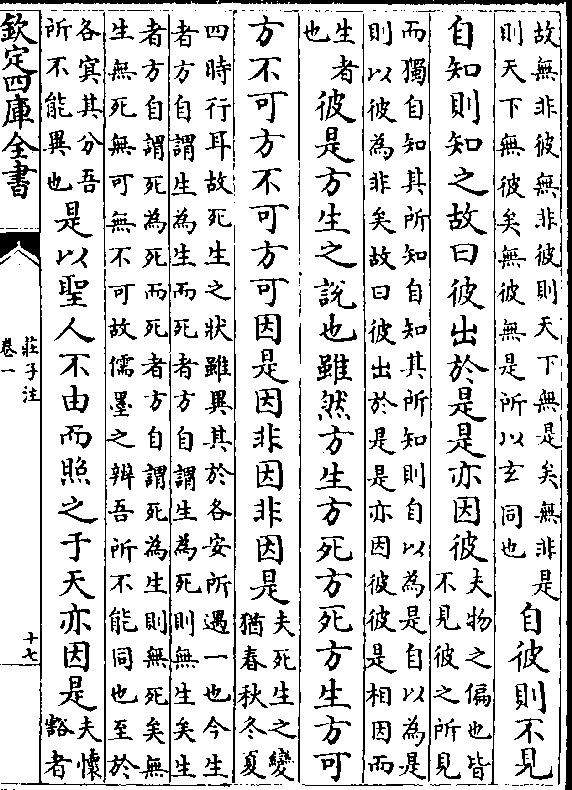 故無非彼無非彼則天下無是矣無非是
則天下無彼矣無彼無是所以玄同也
自彼則不見
自知則知之故曰彼出於是是亦因彼
夫物之偏也皆
不見彼之所見
而獨自知其所知自知其所知則自以為是自以為是
則以彼為非矣故曰彼出於是是亦因彼彼是相因而
生者
也
彼是方生之說也雖然方生方死方死方生方可
方不可方不可方可因是因非因非因是
夫死生之變
猶春秋冬夏
四時行耳故死生之狀雖異其於各安所遇一也今生
者方自謂生為生而死者方自謂生為死則無生矣生
者方自謂死為死而死者方自謂死為生則無死矣無
生無死無可無不可故儒墨之辨吾所不能同也至於
各冥其分吾
所不能異也
是以聖人不由而照之于天亦因是
夫懷
豁者
欽定四庫全書
莊子注
卷一
十七